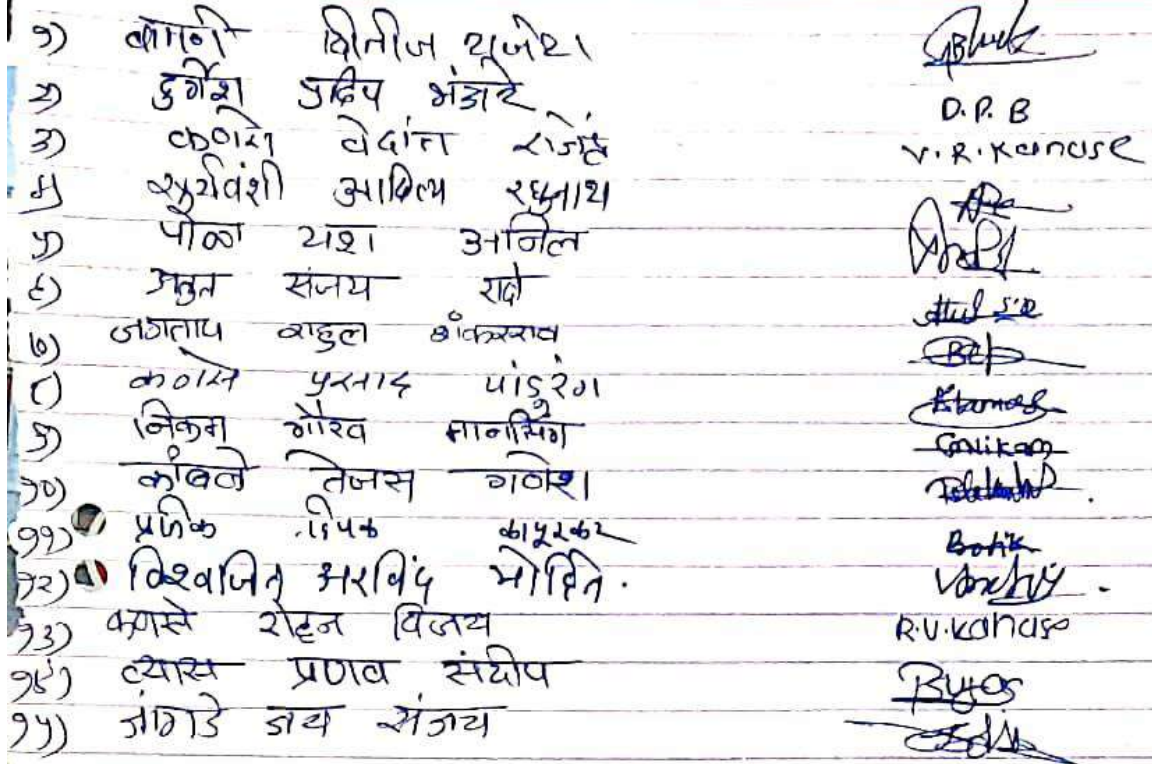 १) क्षितीज
२) दुर्गेश प्रदिप भंडारे D.P.B
३) कणसे वेदांत राजेंद्र V.R.Kanase
४) सुर्यवंशी आदित्य रघुनाथ
५) पोळ यश अनिल
६) अतुल संजय
७) जगताप राहुल शंकरराव
८) कणसे प्रसाद पांडुरंग
९) निकम गौरव मानसिंग Gnikam
१०) कांबळे तेजस गणेश
११) दिपक कापुरकर
१२) विश्वजित अरविंद मोहिते.
१३) कणसे रोहन विजय R.V.Kanase
१४) व्यास प्रणव संदीप
१५) जांगडे जय संजय